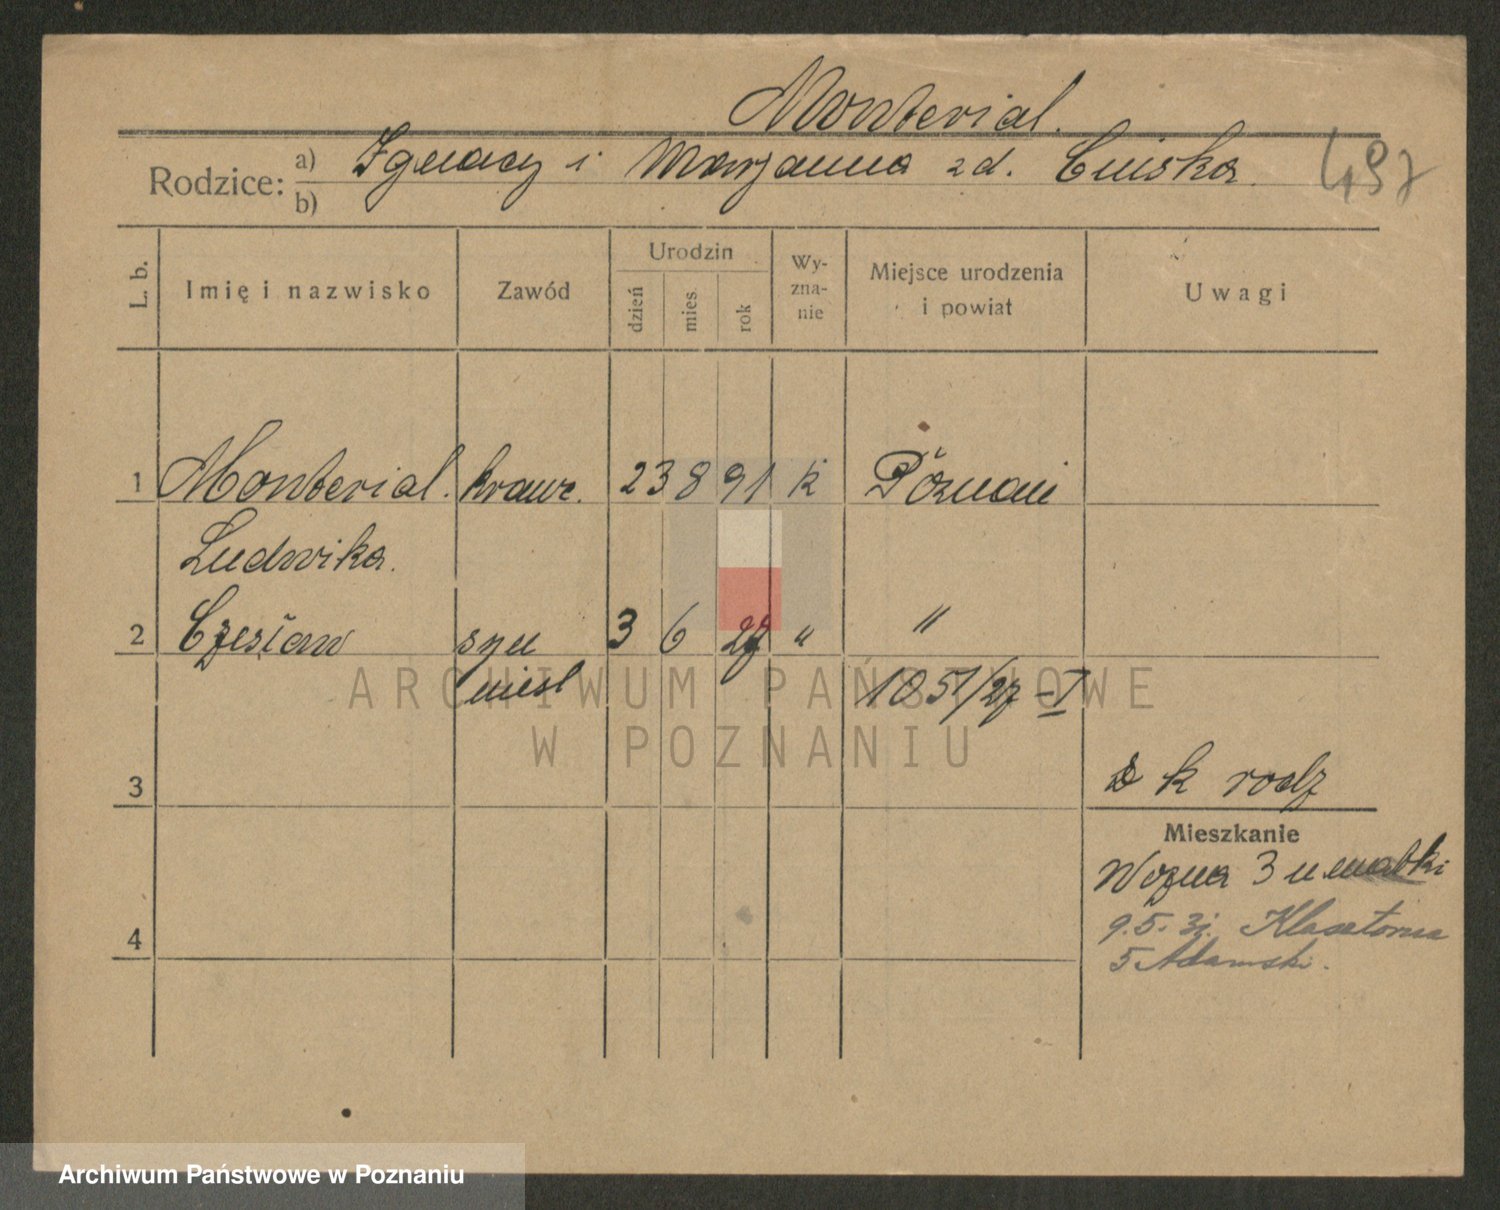 Monterial.
Rodzice: a) Ignacy i Marjanna zd. Cuiska.
b)
497
L. b.
Imię i nazwisko
Zawód
Urodzin
dzień
mies
rok
Wy-
zna-
nie
Miejsce urodzenia
i powiat
Uwagi
1 Monterial. krawc. 23 8 91 k Poznań
Ludwika.
2 Czesław syn 3 6 27 " "
niesl 1051/27 - I
3
k rodz
Mieszkanie
Wozna 3 u matki
9.5.31. Klasztorna
5 Adamski.
4
ARCHIWUM PAŃSTWOWE
W POZNANIU
Archiwum Państwowe w Poznaniu